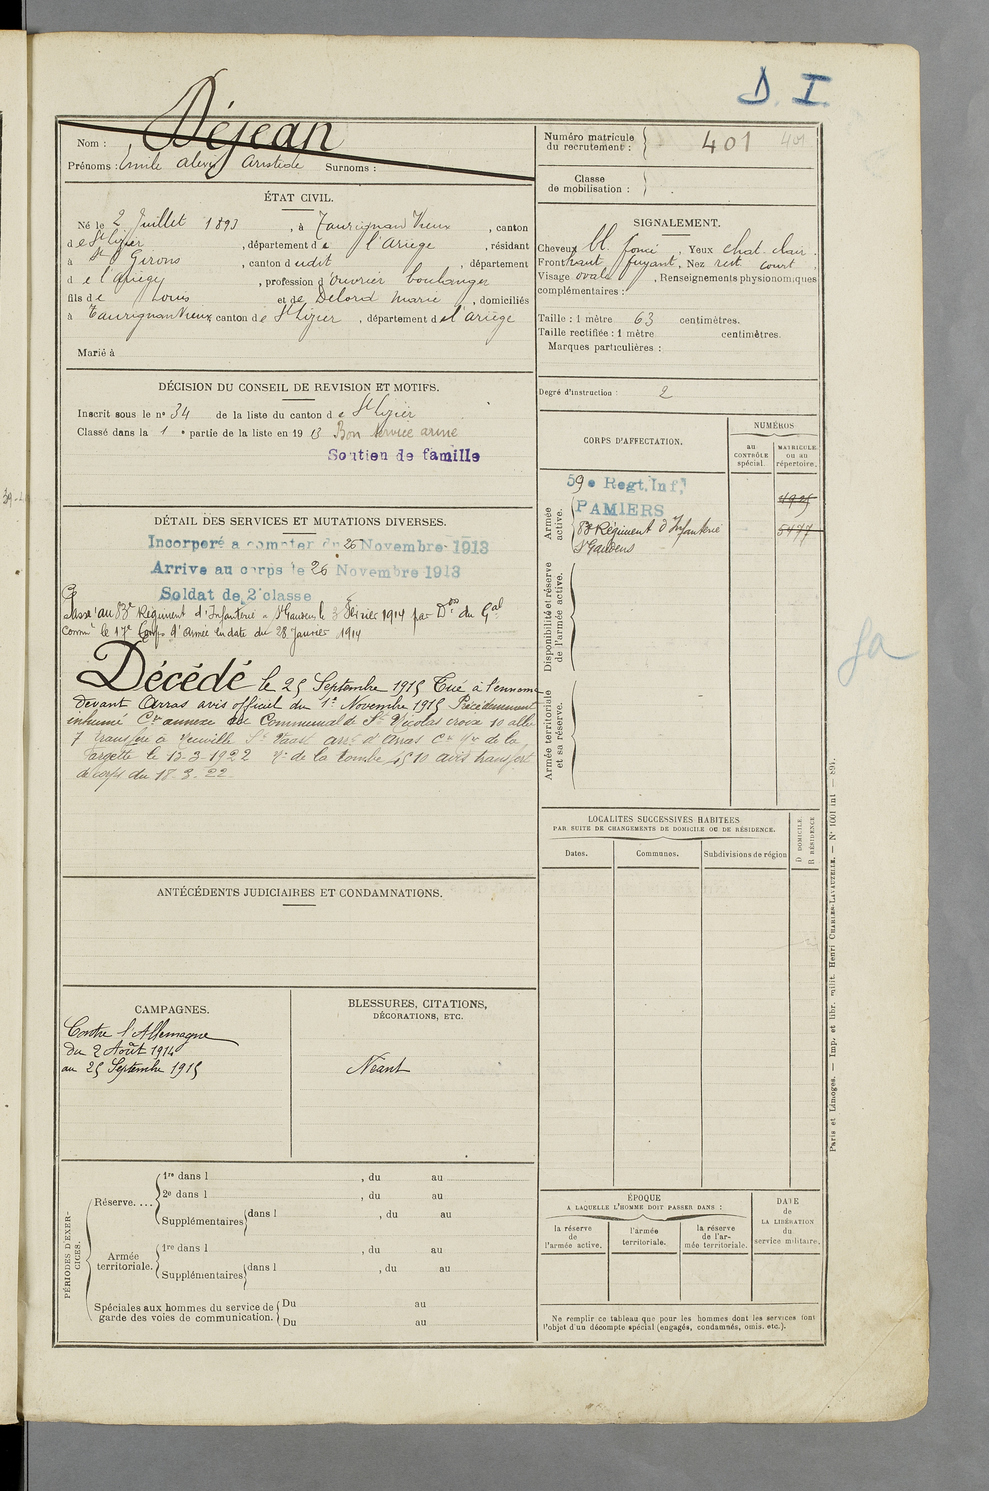 D. I.
Nom : Déjean
Prénoms : Emile Alexis Aristide Surnoms :
Numéro matricule du recrutement : 401 401
Classe de mobilisation :
ÉTAT CIVIL.
Né le 2 Juillet 1893, à Taurignan Vieux, canton
de St Lizier, département de l'Ariège, résidant
à St Girons, canton dudit, département
de l'Ariège, profession d'ouvrier boulanger
fils de Louis et de Delord Marie, domiciliés
à Taurignan Vieux canton de St Lizier, département de l'Ariège
Marié à
SIGNALEMENT.
Cheveux bl. foncé, Yeux chat. clair.
Front haut fuyant, Nez rect. court
Visage ovale, Renseignements physionomiques
complémentaires :
Taille : 1 mètre 63 centimètres.
Taille rectifiée : 1 mètre centimètres.
Marques particulières :
Degré d'instruction : 2
DÉCISION DU CONSEIL DE REVISION ET MOTIFS.
Inscrit sous le nº 34 de la liste du canton de St Lizier
Classé dans la 1e partie de la liste en 1913 Bon service armé
Soutien de famille
DÉTAIL DES SERVICES ET MUTATIONS DIVERSES.
Incorporé à compter du 26 Novembre 1913
Arrivé au corps le 26 Novembre 1913
Soldat de 2e classe
Passé au 83e Régiment d'Infanterie à St Gaudens le 3 Février 1914 par Don du Gal
Comm' le 17e Corps d'Armée en date du 28 Janvier 1914
Décédé le 25 Septembre 1915 Tué à l'ennemi
devant Arras avis officiel du 1er Novembre 1915 Précédemment
inhumé Cre annexe du Communal de St Nicolas croix 10 allée
7 transféré à Neuville St Vaast arrt d'Arras Cre Mre de la
Targette le 15-3-1922 Nº de la tombe 1510 avis transfert
de corps du 18-3-22.
CORPS D'AFFECTATION.
NUMÉROS
au CONTRÔLE spécial.
MATRICULE ou au répertoire.
Armée active.
59e Regt. Inf.
PAMIERS
83e Régiment d'Infanterie
St Gaudens
4925
5477
Disponibilité et réserve de l'armée active.
Armée territoriale et sa réserve.
ga
LOCALITÉS SUCCESSIVES HABITÉES
PAR SUITE DE CHANGEMENTS DE DOMICILE OU DE RÉSIDENCE.
Dates. Communes. Subdivisions de région
D DOMICILE
R RÉSIDENCE
ANTÉCÉDENTS JUDICIAIRES ET CONDAMNATIONS.
CAMPAGNES.
Contre l'Allemagne
du 2 Août 1914
au 25 Septembre 1915
BLESSURES, CITATIONS,
DÉCORATIONS, ETC.
Néant
PÉRIODES D'EXERCICES.
Réserve....
1re dans l , du au
2e dans l , du au
Supplémentaires dans l , du au
Armée territoriale.
1re dans l , du au
Supplémentaires dans l , du au
Spéciales aux hommes du service de garde des voies de communication.
Du au
Du au
ÉPOQUE
A LAQUELLE L'HOMME DOIT PASSER DANS :
la réserve de l'armée active.
l'armée territoriale.
la réserve de l'armée territoriale.
DATE de LA LIBÉRATION du service militaire.
Ne remplir ce tableau que pour les hommes dont les services font
l'objet d'un décompte spécial (engagés, condamnés, omis, etc.).
Paris et Limoges. — Imp. et libr. milit. Henri CHARLES-LAVAUZELLE. — Nº 1001 int — 891.